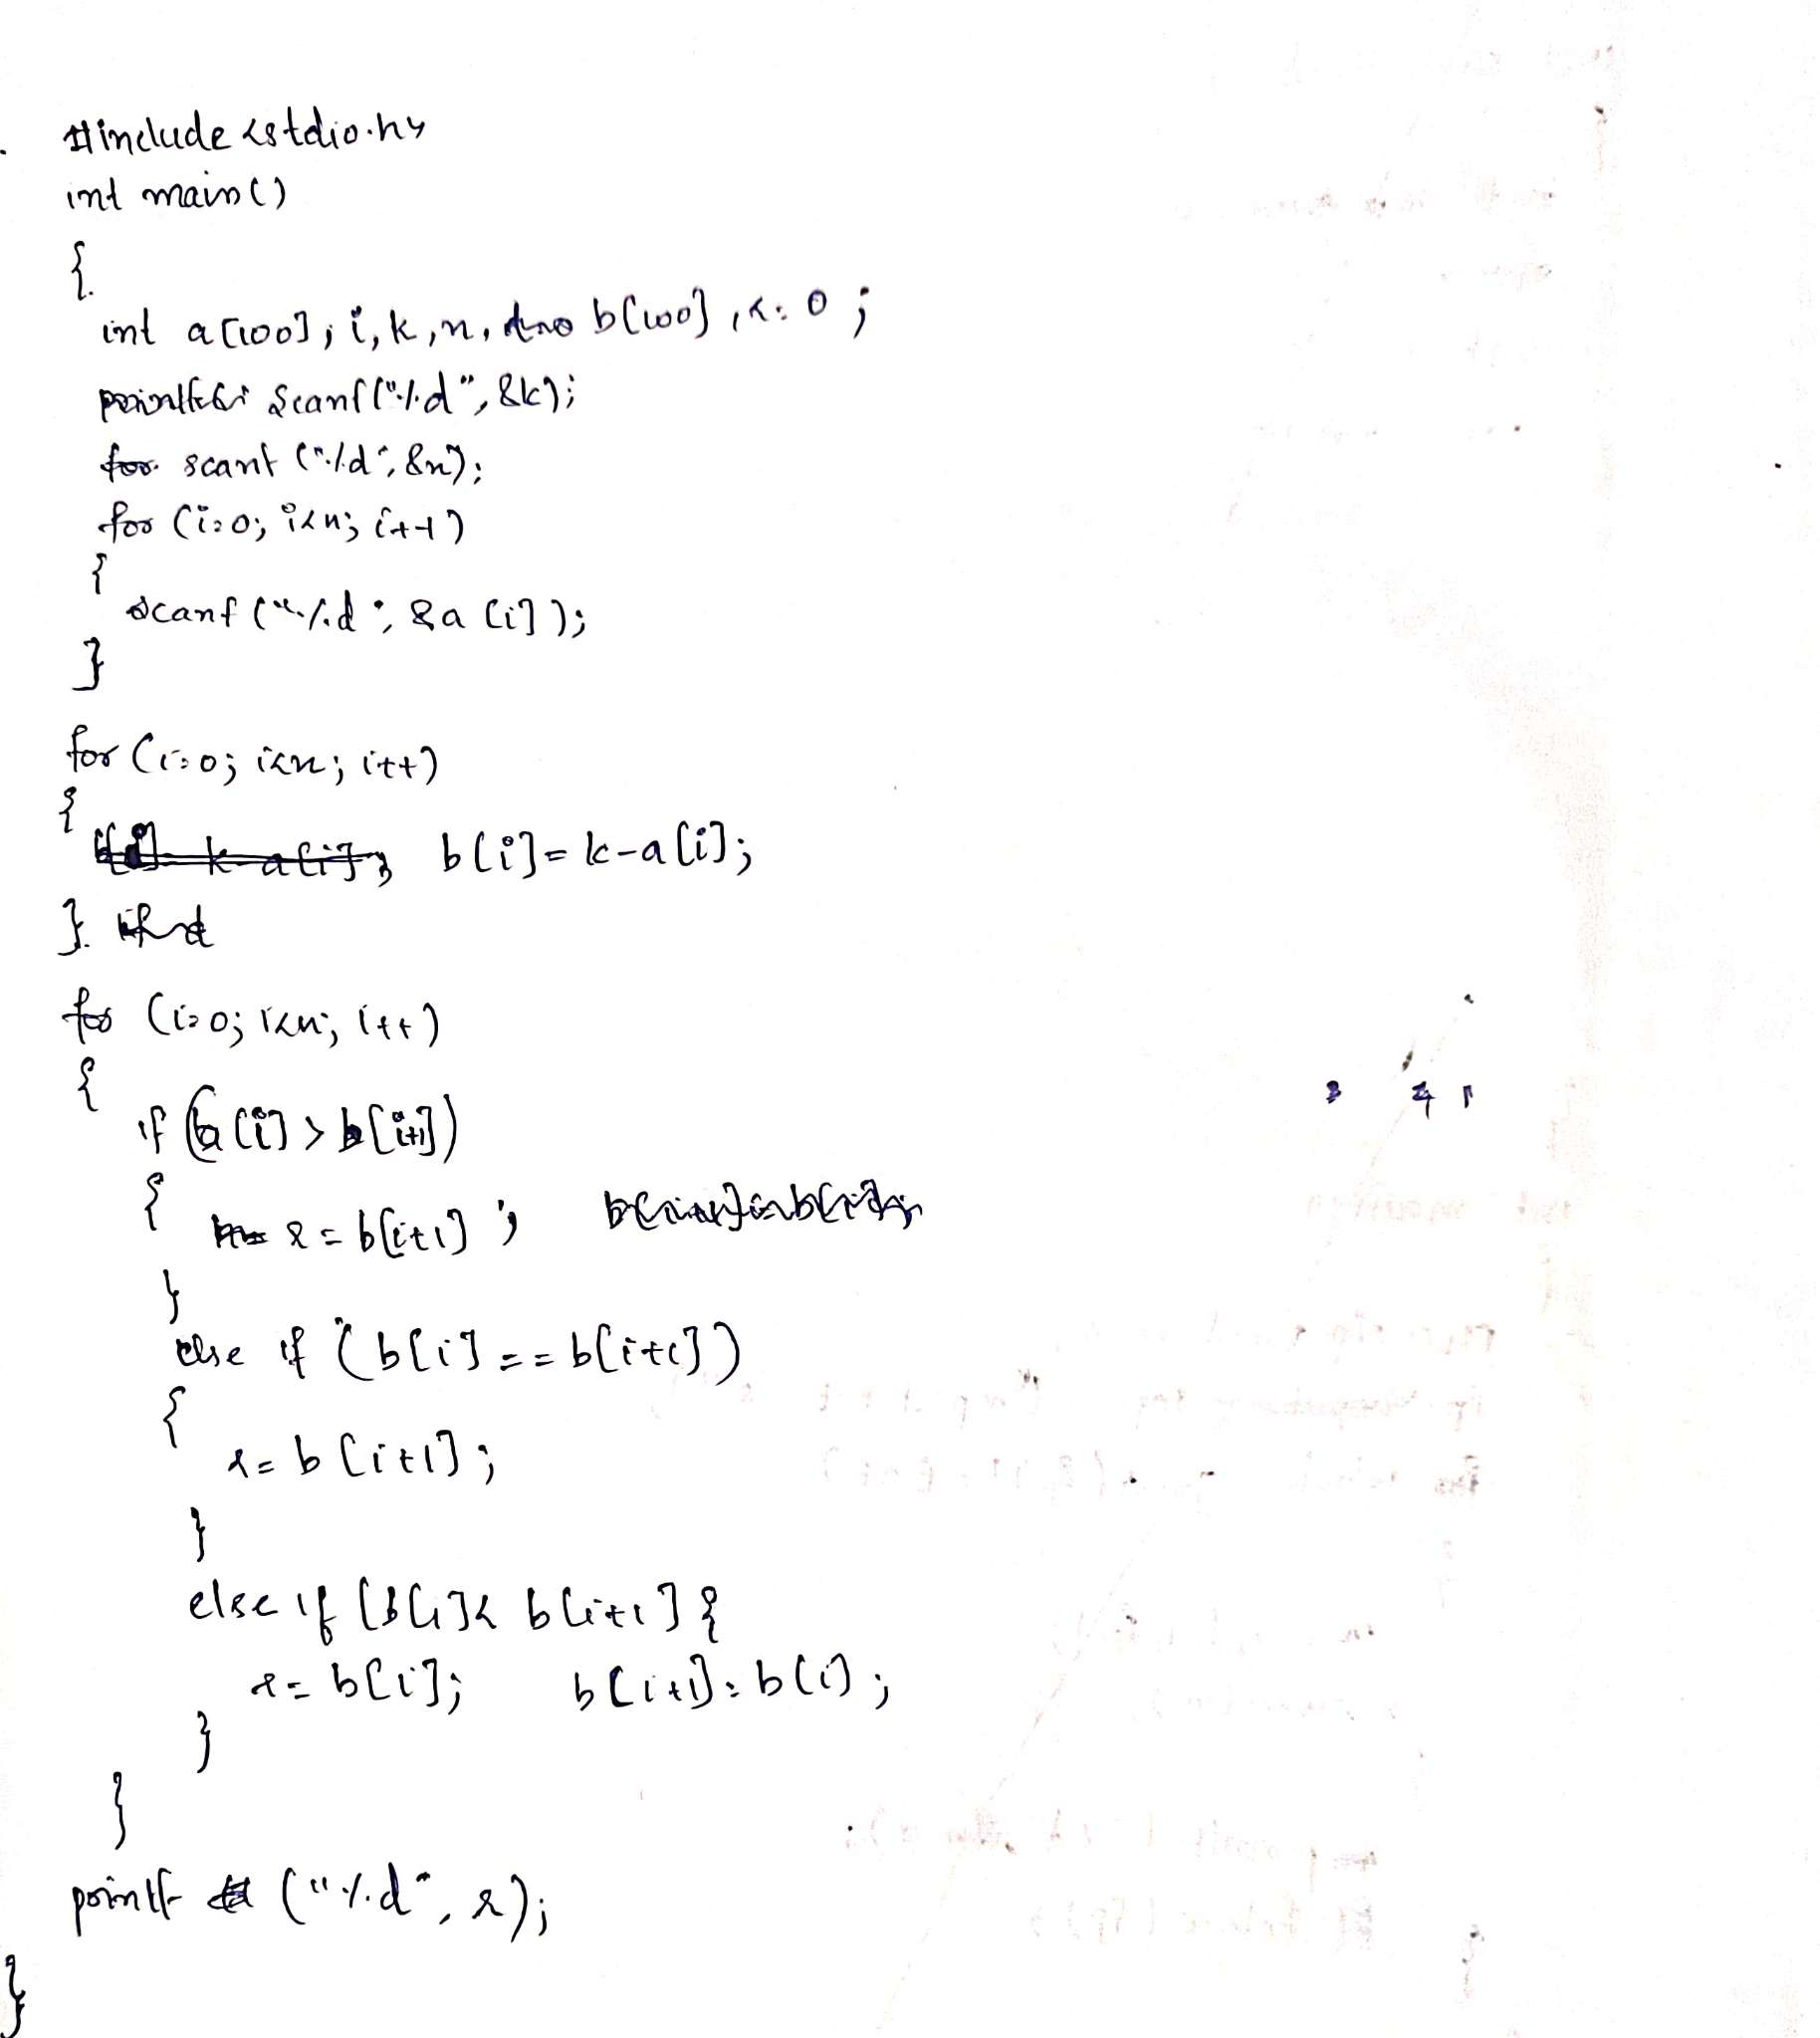 #include <stdio.h>
int main()
{
int a[100], i, k, n, b[100], r=0;
scanf("%d", &k);
scanf("%d", &n);
for (i=0; i<n; i++)
{
scanf("%d", &a[i]);
}
for (i=0; i<n; i++)
{
b[i]=k-a[i];
}
for (i=0; i<n; i++)
{
if (b[i] > b[i+1])
{
r = b[i+1];
}
else if (b[i] == b[i+1])
{
r = b[i+1];
}
else if (b[i] < b[i+1] {
r = b[i]; b[i+1] = b[i];
}
}
printf ("%d", r);
}